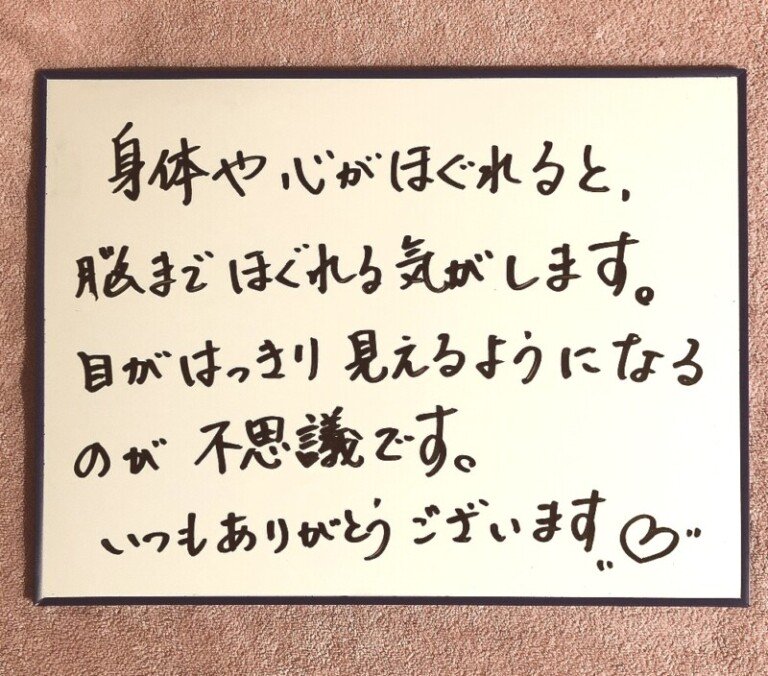 身体や心がほぐれると、
脳までほぐれる気がします。
目がはっきり見えるようになる
のが不思議です。
いつもありがとうございます♡